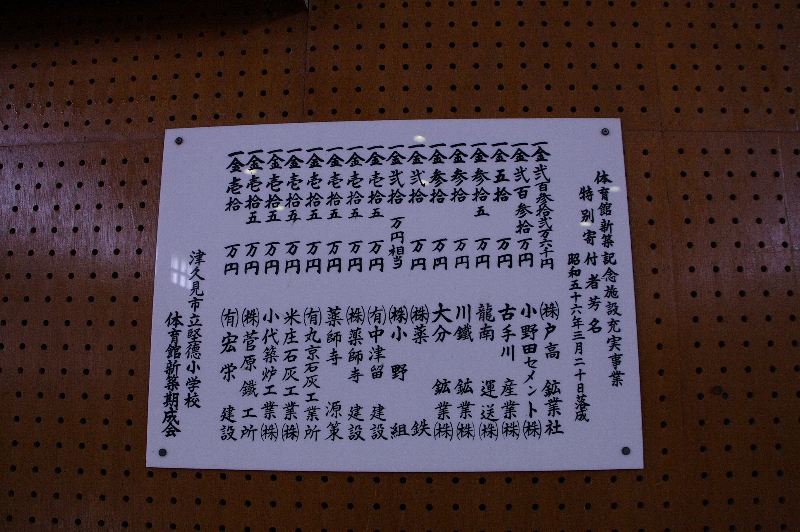 体育館新築記念施設充実事業
特別寄付者芳名
昭和五十六年三月二十日落成
一金弐百参拾弐万六千円 ㈱戸高鉱業社
一金弐百参拾万円 小野田セメント㈱
一金五拾万円 古手川産業㈱
一金参拾五万円 龍南運送㈱
一金参拾万円 川鐵鉱業㈱
一金参拾万円 大分鉱業㈱
一金弐拾万円 ㈱薬鉄
一金弐拾万円相当 ㈱小野組
一金壱拾五万円 ㈲中津留建設
一金壱拾万円 ㈱薬師寺建設
一金壱拾万円 薬師寺源策
一金壱拾万円 ㈲丸京石灰工業所
一金壱拾五万円 米庄石灰工業㈱
一金壱拾五万円 小代築炉工業㈱
一金壱拾五万円 ㈱菅原鐵工所
一金壱拾万円 ㈲宏栄建設
津久見市立堅徳小学校
体育館新築期成会